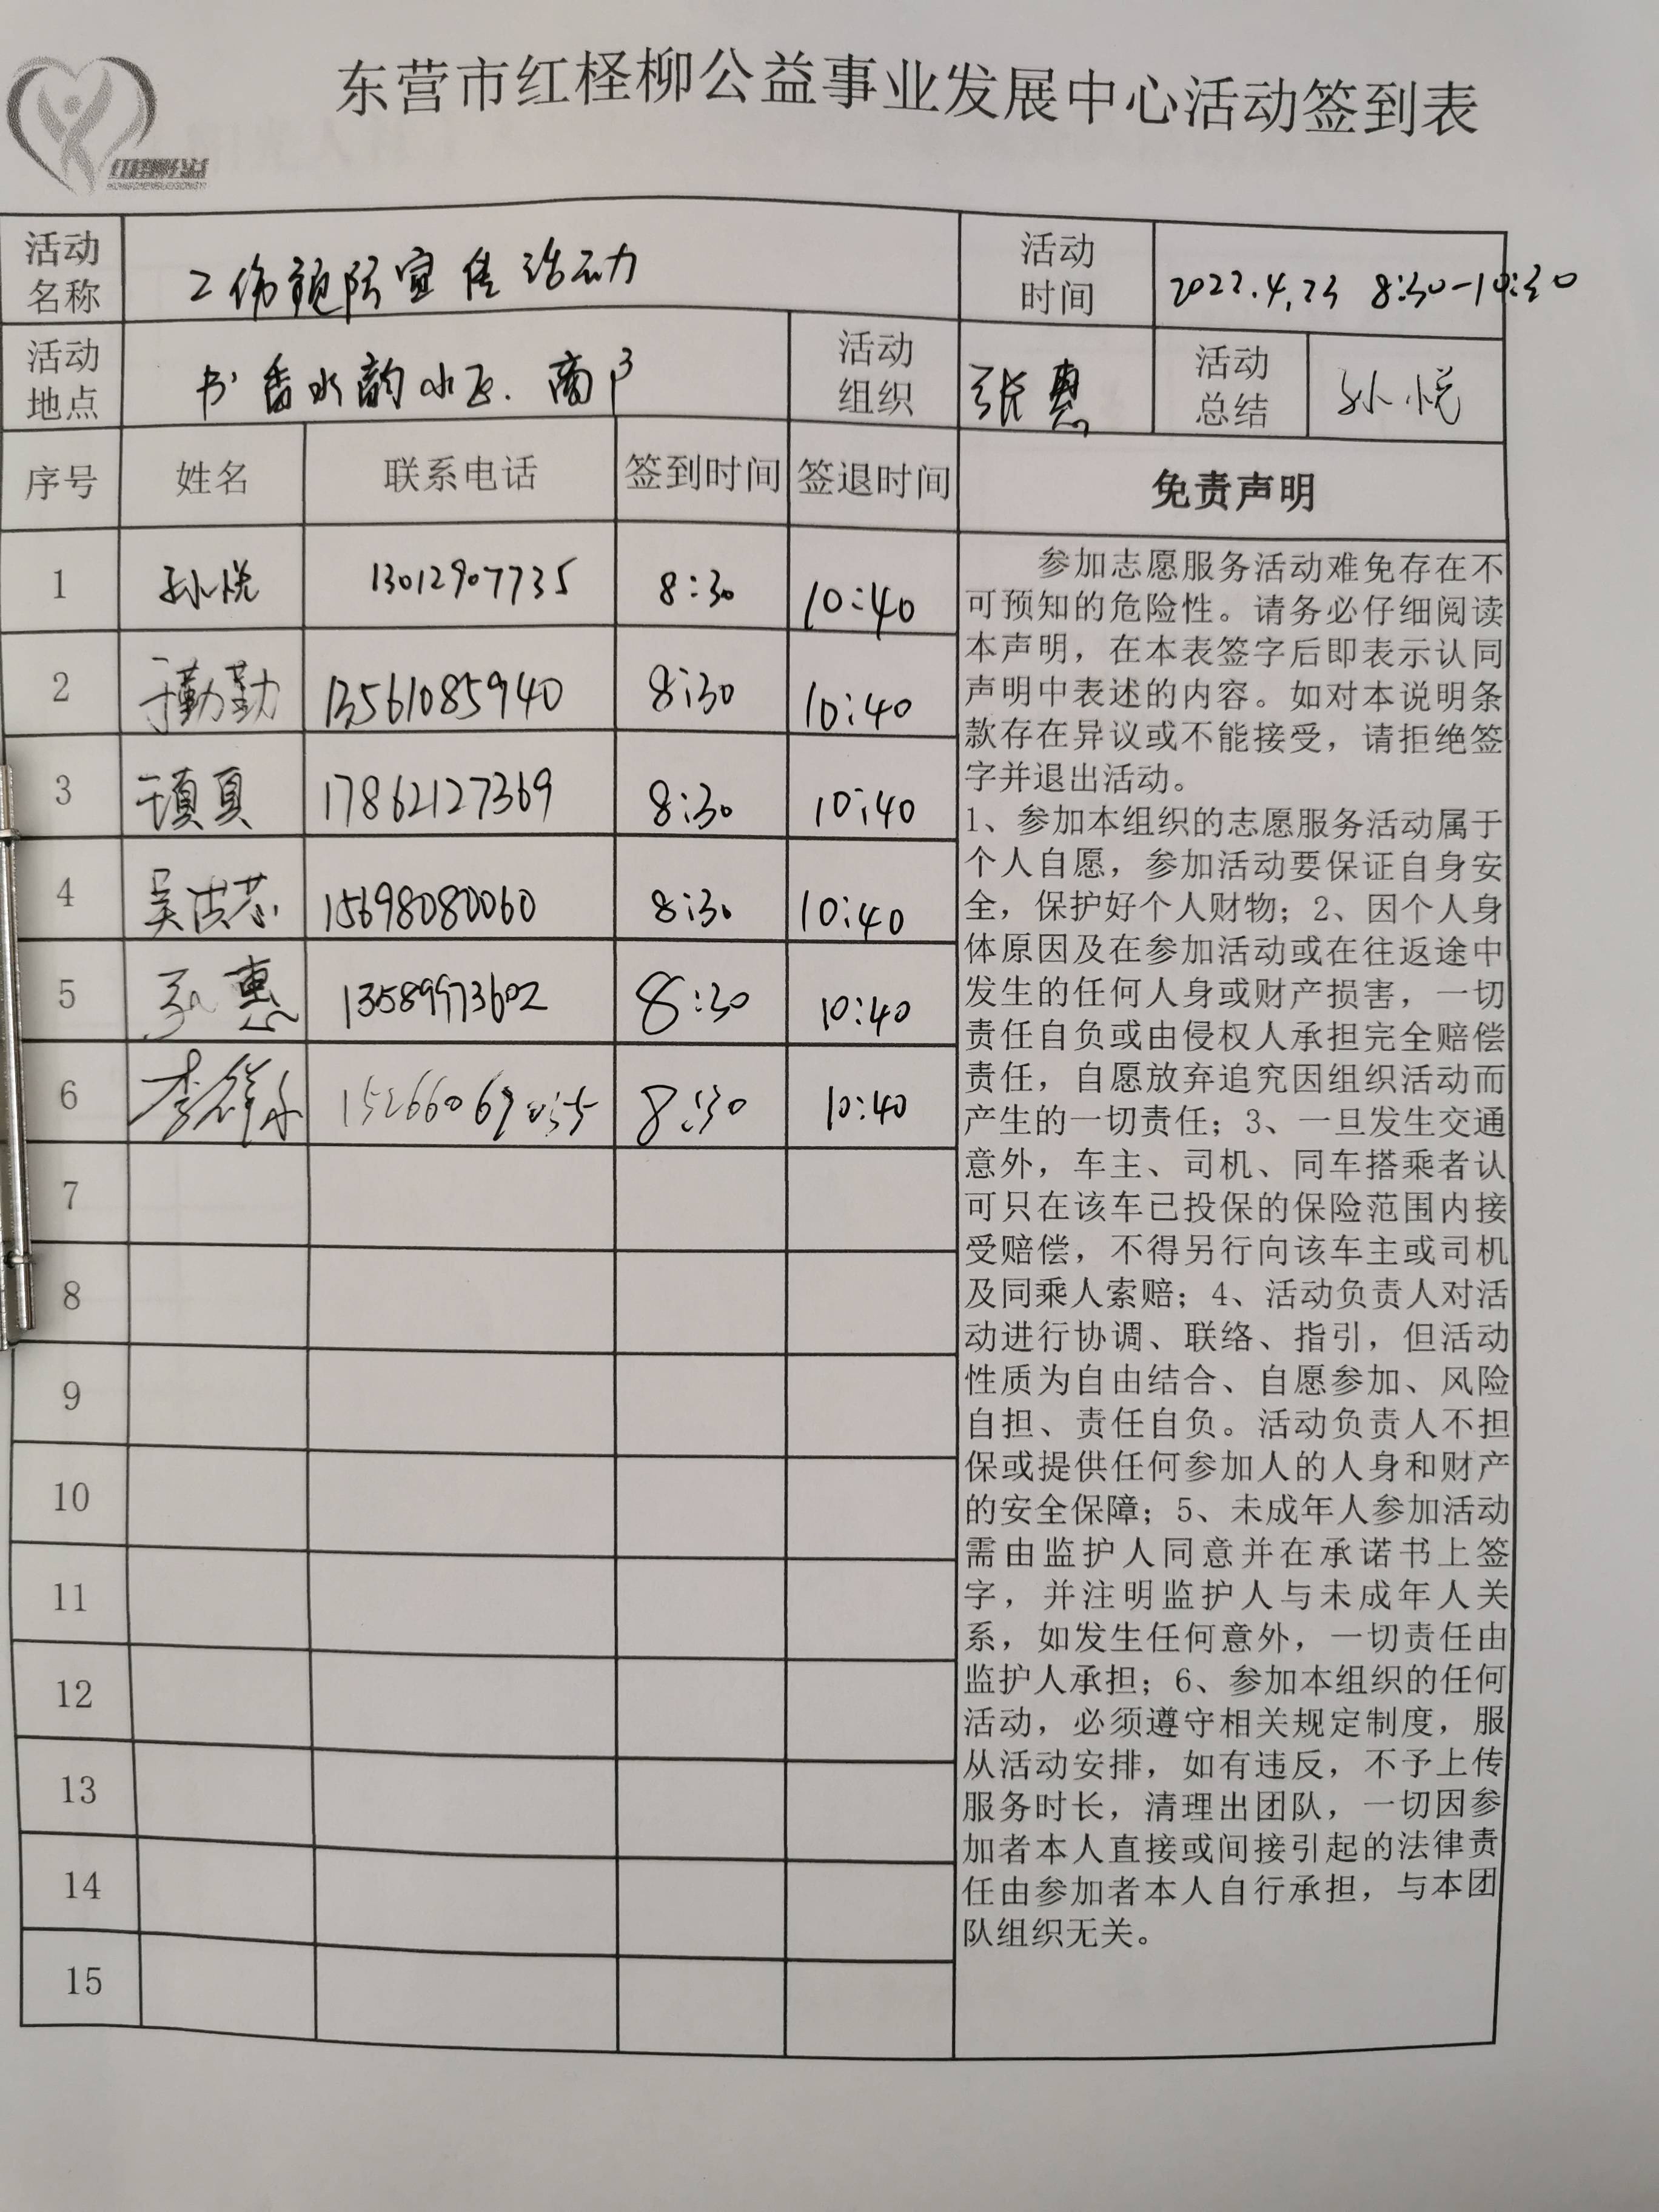 东营市红柽柳公益事业发展中心活动签到表
红柽柳公益
活动名称 工伤预防宣传活动 活动时间 2022.4.23 8:30-10:30
活动地点 书香水韵小区.商户 活动组织 张惠 活动总结 孙悦
序号 姓名 联系电话 签到时间 签退时间 免责声明
1 孙悦 13012907735 8:30 10:40
2 于勤勤 13561085940 8:30 10:40
3 17862127369 8:30 10:40
4 吴洁芯 15698080060 8:30 10:40
5 张惠 13589973602 8:30 10:40
6 李 8:30 10:40
7
8
9
10
11
12
13
14
15
参加志愿服务活动难免存在不
可预知的危险性。请务必仔细阅读
本声明，在本表签字后即表示认同
声明中表述的内容。如对本说明条
款存在异议或不能接受，请拒绝签
字并退出活动。
1、参加本组织的志愿服务活动属于
个人自愿，参加活动要保证自身安
全，保护好个人财物；2、因个人身
体原因及在参加活动或在往返途中
发生的任何人身或财产损害，一切
责任自负或由侵权人承担完全赔偿
责任，自愿放弃追究因组织活动而
产生的一切责任；3、一旦发生交通
意外，车主、司机、同车搭乘者认
可只在该车已投保的保险范围内接
受赔偿，不得另行向该车主或司机
及同乘人索赔；4、活动负责人对活
动进行协调、联络、指引，但活动
性质为自由结合、自愿参加、风险
自担、责任自负。活动负责人不担
保或提供任何参加人的人身和财产
的安全保障；5、未成年人参加活动
需由监护人同意并在承诺书上签
字，并注明监护人与未成年人关
系，如发生任何意外，一切责任由
监护人承担；6、参加本组织的任何
活动，必须遵守相关规定制度，服
从活动安排，如有违反，不予上传
服务时长，清理出团队，一切因参
加者本人直接或间接引起的法律责
任由参加者本人自行承担，与本团
队组织无关。